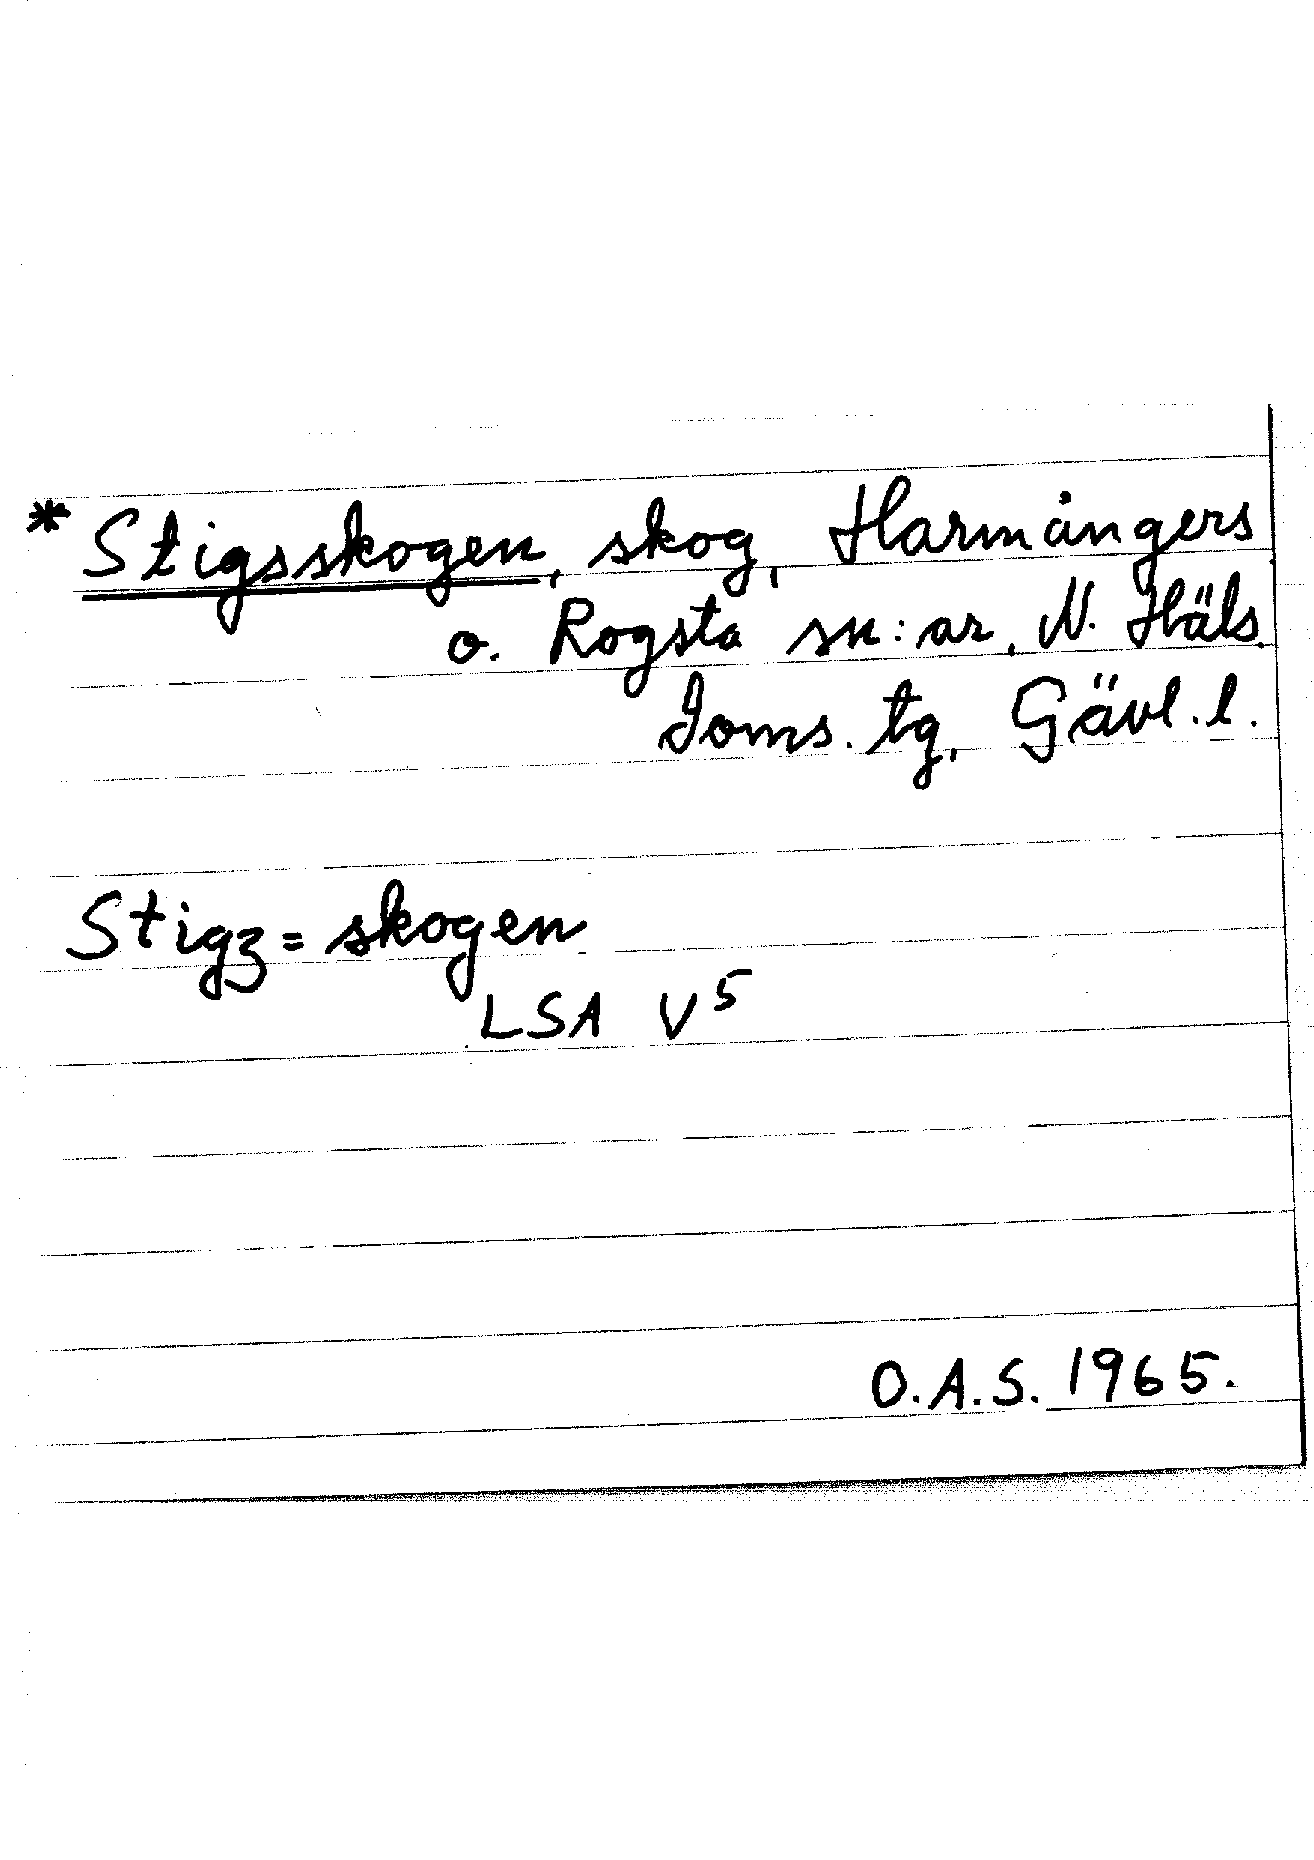 * Stigsskogen, skog, Harmångers
o. Rogsta sn:ar, N. Häls.
Doms. tg, Gävl. l.
Stigz=skogen
LSA V⁵
O.A.S. 1965.